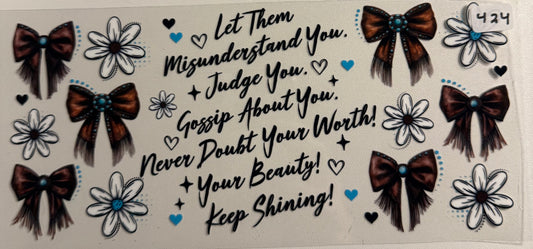 Let Them
Misunderstand You.
Judge You.
Gossip About You.
Never Doubt Your Worth!
Your Beauty!
Keep Shining!
424